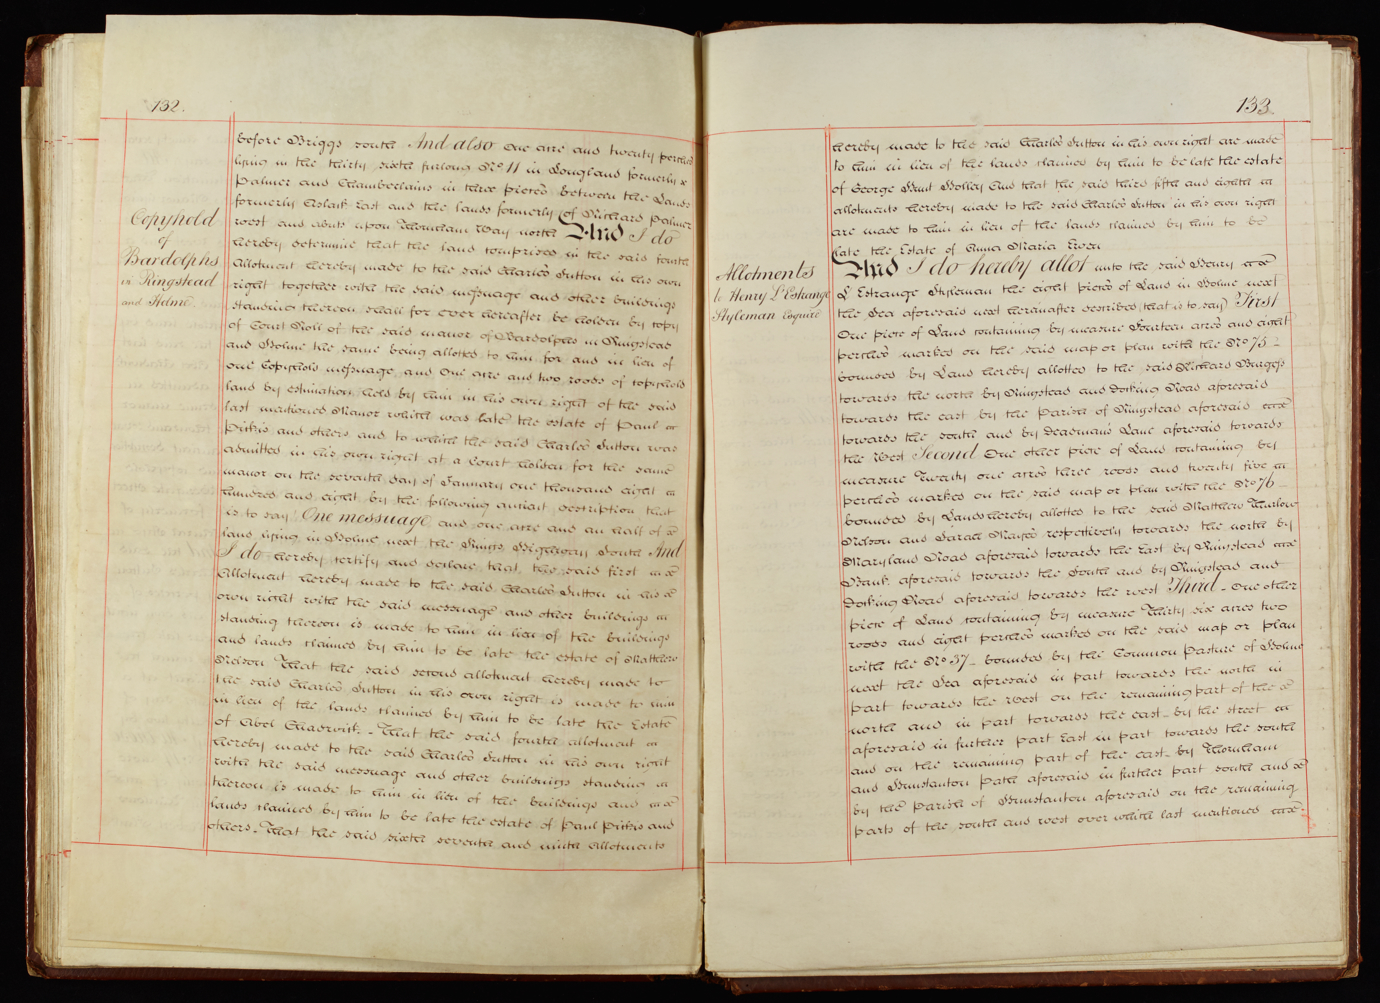 132.
before Briggs south And also One acre and twenty perches
lying in the thirty sixth furlong No. 11 in Longland formerly
Palmer and Chamberlains in three pieces between the Lands
formerly East and the lands formerly of Richard Palmer
west and abuts upon Thornham Way north And I do
hereby determine that the land comprised in the said fourth
Allotment hereby made to the said Charles Sutton in his own
right together with the said messuage and other buildings
standing thereon shall for ever hereafter be holden by copy
of Court Roll of the said manor of Bardolphs in Ringstead
and Holme the same being allotted to him for and in lieu of
one Copyhold messuage and One acre and two roods of copyhold
land by estimation held by him in his own right of the said
last mentioned Manor which was late the estate of Paul
Pickis and others and to which the said Charles Sutton was
admitted in his own right at a Court holden for the same
manor on the seventh day of January one thousand eight
hundred and eight by the following antient description that
is to say One messuage and one acre and an half of
land lying in Holme next the Kings Highway South And
I do hereby certify and declare that the said first
Allotment hereby made to the said Charles Sutton in his
own right with the said messuage and other buildings
standing thereon is made to him in lieu of the buildings
and lands claimed by him to be late the estate of Matthew
Nelson That the said second allotment hereby made to
the said Charles Sutton in his own right is made to him
in lieu of the lands claimed by him to be late the Estate
of Abel Chadwick - That the said fourth allotment
hereby made to the said Charles Sutton in his own right
with the said messuage and other buildings standing
thereon is made to him in lieu of the buildings and
lands claimed by him to be late the estate of Paul Pickis and
others - That the said sixth seventh and ninth Allotments
Copyhold
of
Bardolphs
in Ringstead
and Holme
133
hereby made to the said Charles Sutton in his own right are made
to him in lieu of the lands claimed by him to be late the estate
of George Hunt Holley And that the said third fifth and eighth
allotments hereby made to the said Charles Sutton in his own right
are made to him in lieu of the lands claimed by him to be
late the Estate of Anna Maria
And I do hereby allot unto the said Henry
L'Estrange Styleman the eight pieces of Land in Holme next
the Sea aforesaid next hereinafter described (that is to say) First
One piece of Land containing by measure Fourteen acres and eight
perches marked on the said map or plan with the No 75 -
bounded by Land hereby allotted to the said Richard Burgess
towards the north by Ringstead and Docking Road aforesaid
towards the east by the Parish of Ringstead aforesaid
towards the south and by Deadmans Lane aforesaid towards
the West Second One other piece of Land containing by
measure Twenty one acres three roods and twenty five
perches marked on the said map or plan with the No 76 -
bounded by Lands hereby allotted to the said Matthew Thurlow
Nelson and Sarah Mayes respectively towards the north by
Maryland Road aforesaid towards the East by Ringstead
Bank aforesaid towards the South and by Ringstead and
Docking Road aforesaid towards the west Third - One other
piece of Land containing by measure Thirty six acres two
roods and eight perches marked on the said map or plan
with the No 37 - bounded by the Common Pasture of Holme
next the Sea aforesaid in part towards the north in
part towards the West on the remaining part of the
north and in part towards the east - by the street
aforesaid in further part East in part towards the south
and on the remaining part of the east - by Thornham
and Hunstanton Path aforesaid in further part south and
by the Parish of Hunstanton aforesaid on the remaining
parts of the south and west over which last mentioned
Allotments
to Henry L'Estrange
Styleman Esquire